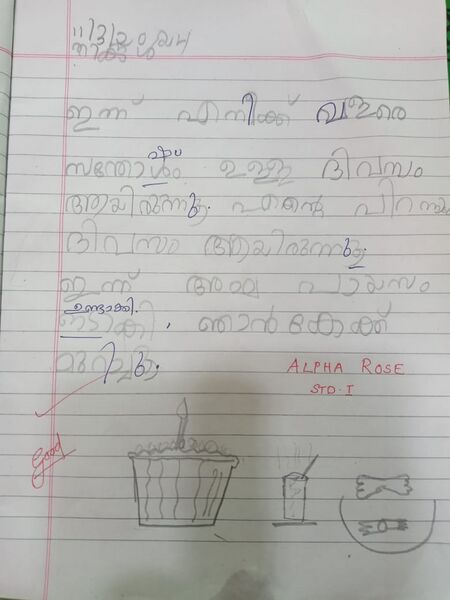 ഇന്ന് എനിക്ക് വളരെ
ഷം
സന്തോശം ഉള്ള ദിവസം
ആയിരുന്നു. എന്റെ
ദിവസം ആയിരുന്നു.
ഇന്ന് അമ്മ പായസം
ഉണ്ടാക്കി.
ഞാൻ കേക്ക്
മുറിച്ചു.
ALPHA ROSE
STD. I
Good